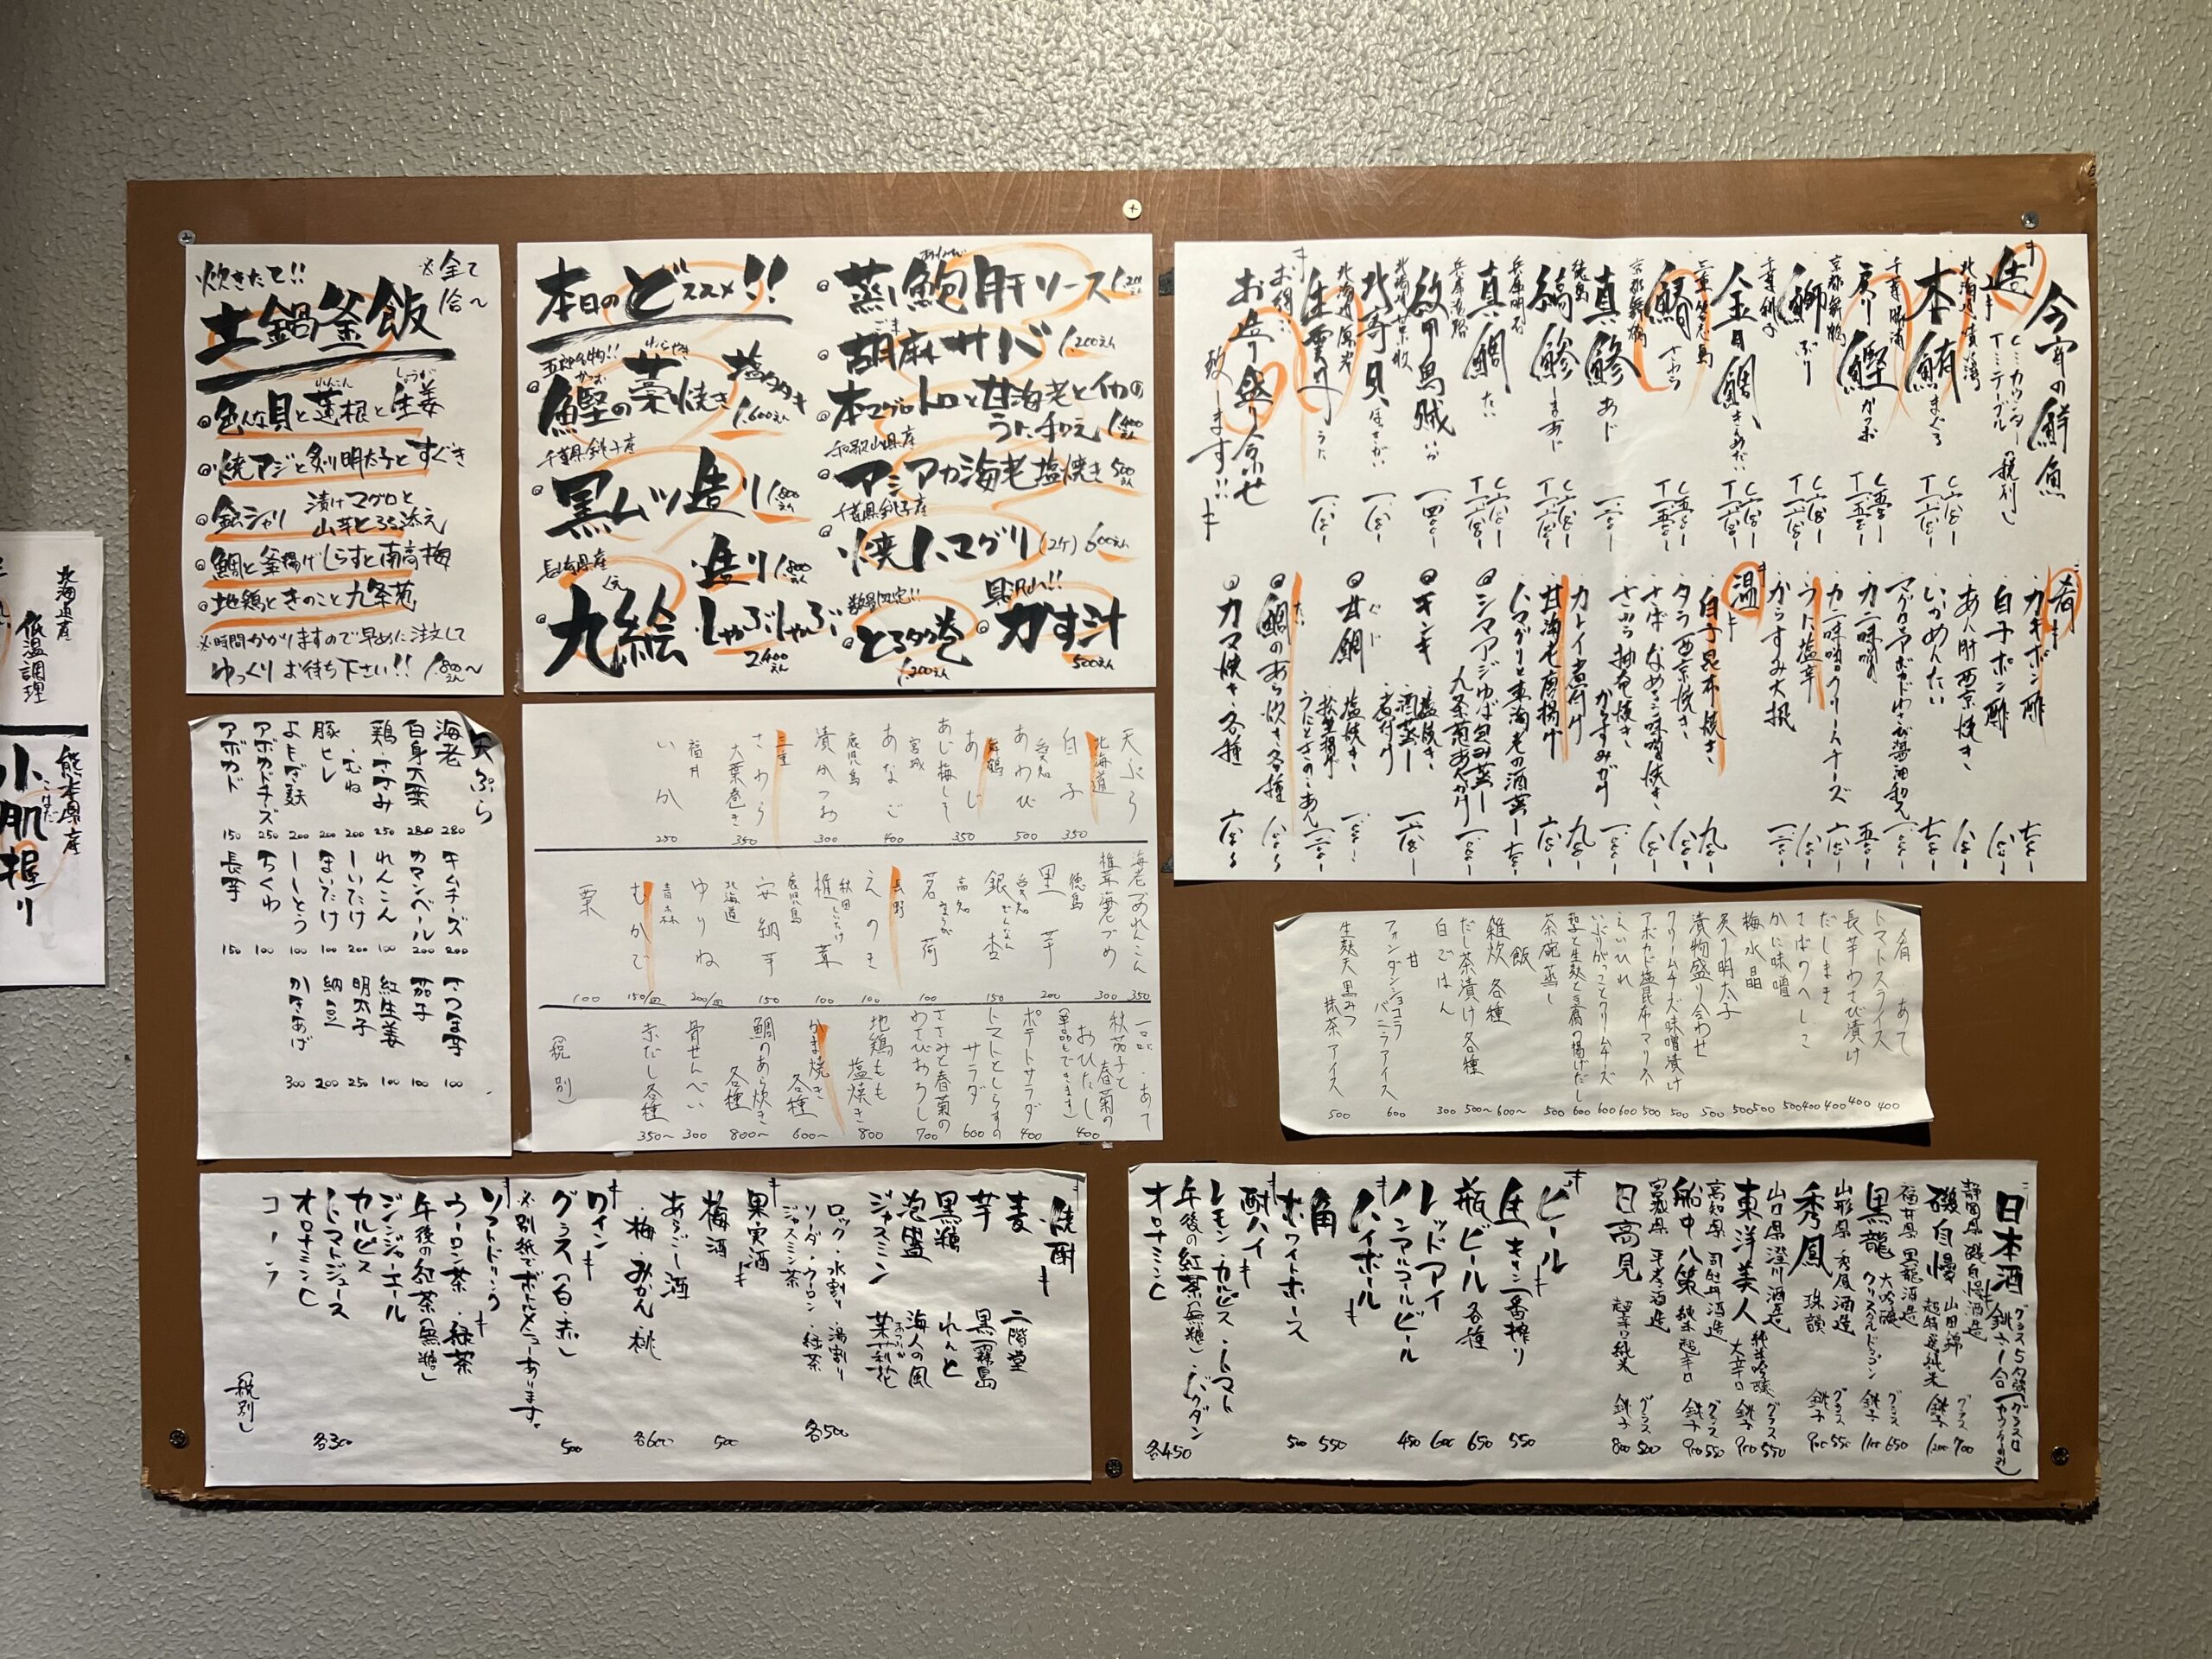 炊きたて!!
※全て
土鍋釜飯
色んな貝と蓮根と生姜
焼アジと炙り明太子とすぐき
金シャリ 漬けマグロと
山芋とろろ添え
鯛と釜揚げしらすと南高梅
地鶏ときのこと九条葱
※時間かかりますので早めに注文して
ゆっくりお待ち下さい!! 1,800〜
本日のどススメ!!
鰹の藁焼き 塩タタキ 1,600えん
千葉県銚子産
黒ムツ造り 1,800えん
長崎県産
九絵 造り 1,800えん
しゃぶしゃぶ 2,400えん
蒸し鮑肝ソース
胡麻サバ 1,200えん
本マグロトロと甘海老とイカの
うに和え 1,400えん
和歌山県産
アシアカ海老塩焼き 500えん
千葉県銚子産
焼ハマグリ(2ケ) 600えん
数量限定!!
とろタク巻 1,200えん
具沢山!!
カす汁 500えん
今宵の鮮魚
造
C…カウンター
T…テーブル (税別)
本鮪 まぐろ
千葉勝浦
戻り鰹 かつお
京都舞鶴
鰤 ぶり
千葉銚子
金目鯛 きんめだい
鰆 さわら
京都舞鶴
真鯵 あじ
徳島
縞鯵 しまあじ
兵庫明石
真鯛 たい
兵庫淡路
紋甲烏賊 いか
北寄貝 ほっきがい
生雲丹 うに
お造り盛り合わせ
致します!!
肴
カキポン酢
白子ポン酢
あん肝西京焼き
いかめんたい
マグロアボカドわさび醤油和え
カニ味噌
カニ味噌クリームチーズ
うに塩辛
からすみ大根
温
白子昆布焼き
タラ西京焼き
さばなめこ味噌焼き
さわら柚庵焼き からすみがけ
カレイ煮付け
甘海老唐揚げ
ハマグリと車海老の酒蒸し
シマアジゆば包み蒸し
九条葱あんかけ
キンキ 塩焼き
酒蒸し
煮付け
甘鯛 塩焼き
松笠揚げ
うにときのこあん
鯛のあら炊き 各種
カマ焼き 各種
天ぷら
海老 280
白身大葉 280
鶏ささみ 250
むね 200
豚ヒレ 200
よもぎ麩 200
アボカドチーズ 250
アボカド 150
キムチーズ 200
カマンベール 200
れんこん 100
しいたけ 200
まいたけ 100
ししとう 100
ちくわ 100
長芋 150
さつま芋 100
茄子 100
紅生姜 100
明太子 250
納豆 200
かきあげ 300
天ぷら
北海道
白子 350
愛知
あわび 500
舞鶴
あじ
あじ梅しそ 350
宮城
あなご 400
鹿児島
漬かつお 300
三重
さわら
大葉巻き 350
福井
いか 250
海老づめれんこん 350
椎茸海老づめ 300
徳島
里芋 200
愛知
銀杏 ぎんなん 150
高知
茗荷 みょうが 100
長野
えのき 100
秋田
椎茸 しいたけ 100
鹿児島
安納芋 150
北海道
ゆりね 200/皿
青森
むかご 150/皿
栗 100
一品・あて
秋茄子と春菊の
おひたし 400
(単品もできます)
ポテトサラダ 400
トマトとしらすの
サラダ 600
ささみと春菊の
わさびおろし 700
地鶏もも
塩焼き 800
かま焼き
各種 600〜
鯛のあら炊き
各種 800〜
骨せんべい 300
赤だし各種 350〜
(税別)
肴 あて
トマトスライス 400
長芋わさび漬け 400
だしまき 400
さばのへしこ 400
かに味噌 500
梅水晶 500
炙り明太子 500
漬物盛り合わせ 500
クリームチーズ味噌漬け 500
アボカド塩昆布マリネ 500
えいひれ 600
いぶりがっことクリームチーズ 600
茄子と生麩と豆腐の揚げだし 600
茶碗蒸し 500
飯
雑炊 各種 600〜
だし茶漬け各種 500〜
白ごはん 300
甘
フォンダンショコラ
バニラアイス 600
生麩天黒みつ
抹茶アイス 500
焼酎
麦 二階堂
芋 黒霧島
黒糖 れんと
泡盛 海人の風
ジャスミン 茉莉花
ロック・水割り・湯割り
ソーダ・ウーロン・緑茶
ジャスミン茶
各500
果実酒
梅酒 500
あらごし酒
梅・みかん・桃 各600
ワイン
グラス(白・赤) 500
※別紙でボトルメニューあります。
ソフトドリンク
ウーロン茶・緑茶
午後の紅茶(無糖)
ジンジャーエール
カルピス
トマトジュース
オロナミンC
コーラ
各300
(税別)
日本酒
静岡県 磯自慢酒造
磯自慢 山田錦
超特選純米
グラス 700
銚子 1200
福井県 黒龍酒造
黒龍 大吟醸
クリスタルドラゴン
グラス 650
銚子 1100
山形県 秀鳳酒造
秀鳳 珠韻
グラス 550
銚子 900
山口県 澄川酒造
東洋美人 純米吟醸
大辛口
グラス 550
銚子 900
高知県 司牡丹酒造
船中八策 純米超辛口
グラス 550
銚子 900
宮城県 平孝酒造
日高見 超辛口純米
グラス 500
銚子 800
ビール
生 キリン一番搾り 550
瓶ビール 各種 650
レッドアイ 600
ノンアルコールビール 450
ハイボール
角 550
ホワイトホース 500
酎ハイ
レモン・カルピス・トマト
午後の紅茶(無糖)・バクダン
オロナミンC
各450
北海道産
低温調理
熊本県産
小肌握り
こはだ